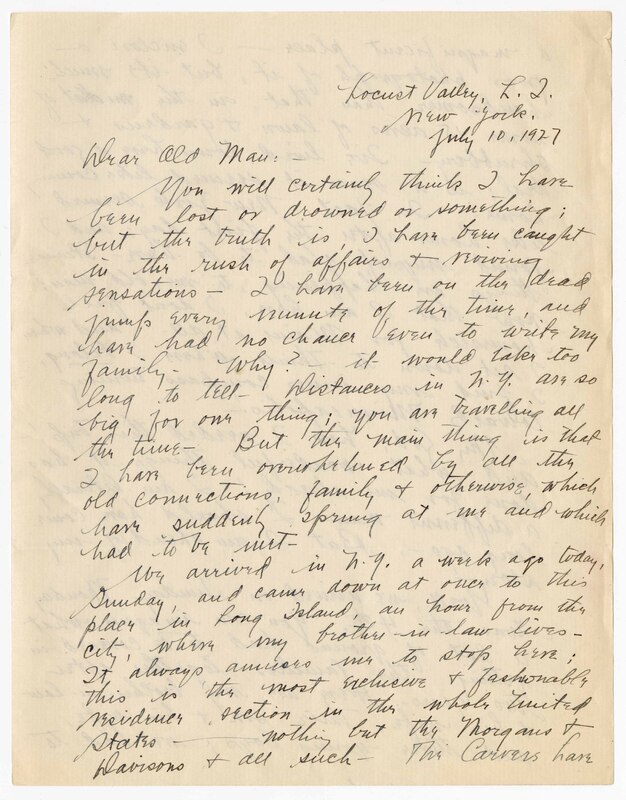 Locust Valley, L. I.
New York.
July 10, 1927
Dear Old Man: -
You will certainly think I have
been lost or drowned or something;
but the truth is, I have been caught
in the rush of affairs & reviving
sensations - I have been on the dead
jump every minute of the time, and
have had no chance even to write my
family - Why? - it would take too
long to tell - Distances in N.Y. are so
big, for one thing; you are travelling all
the time - But the main thing is that
I have been overwhelmed by all the
old connections, family & otherwise, which
have suddenly sprung at me and which
had to be met -
We arrived in N.Y. a week ago today,
Sunday, and came down at once to this
place in Long Island, an hour from the
city, where my brother-in-law lives -
It always amuses me to stop here;
this is the most exclusive & fashionable
residence section in the whole United
States - nothing but the Morgans &
Davisons & all such - The Carvers have